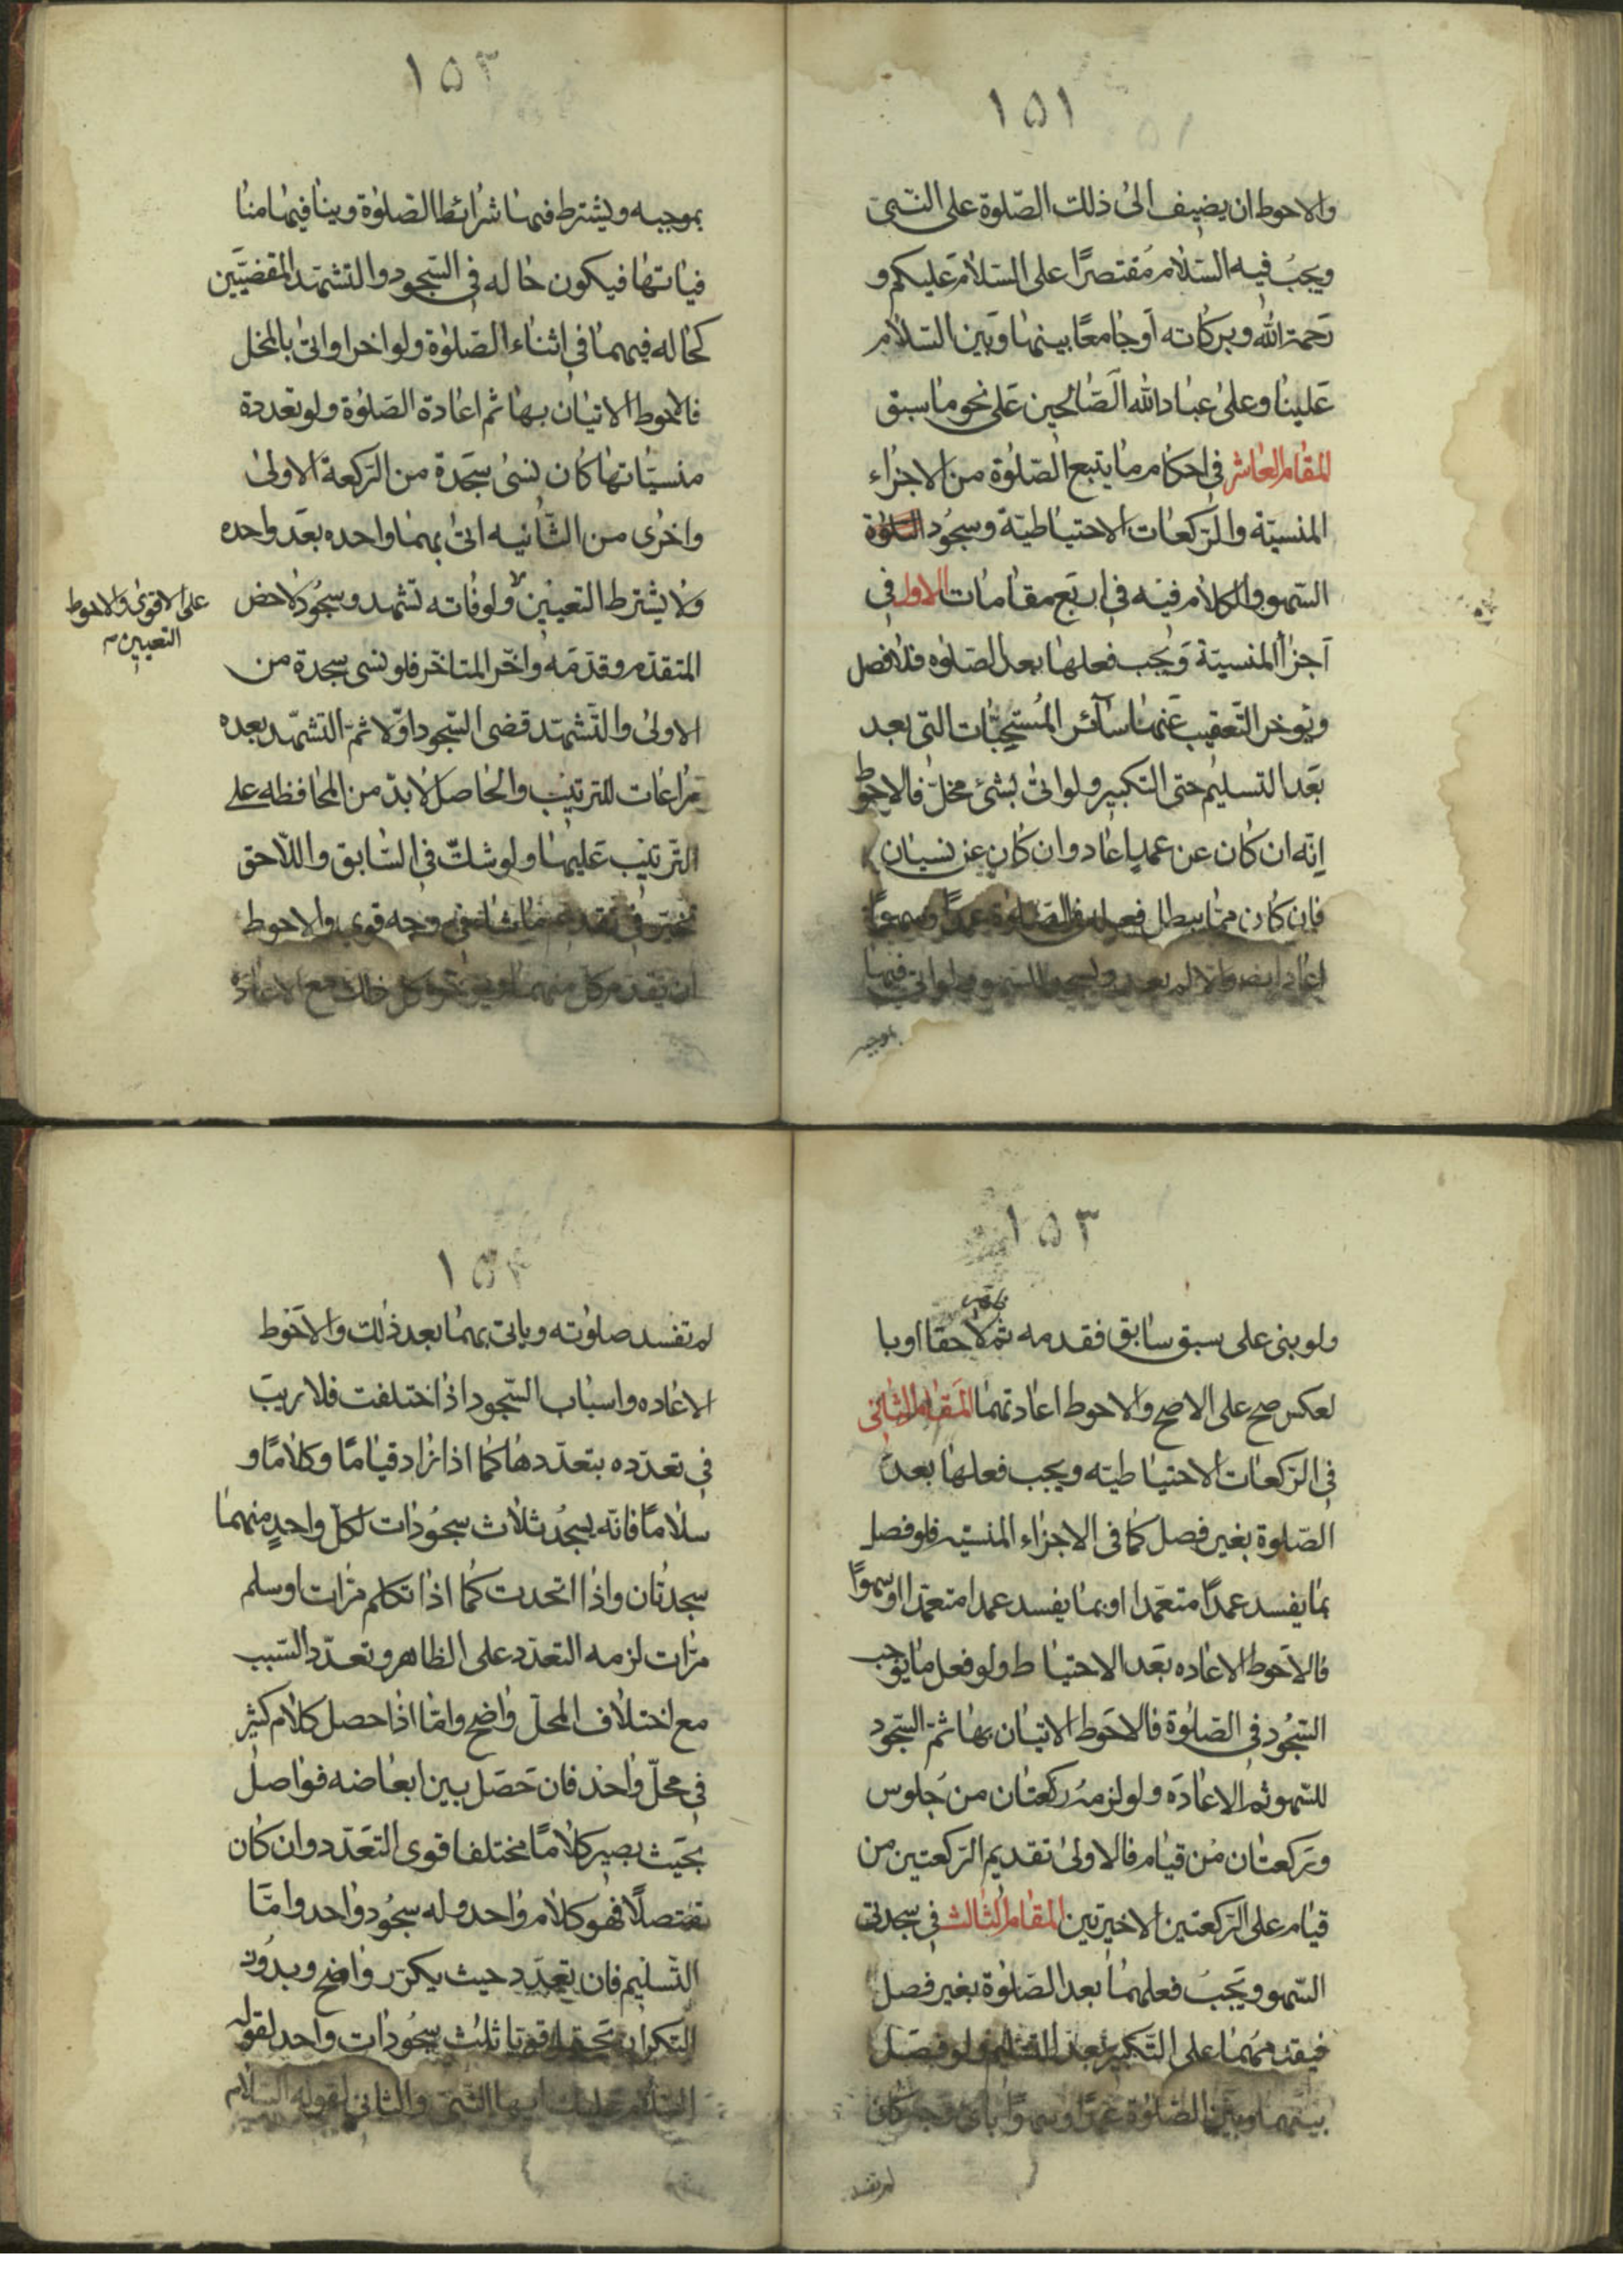 ١٥١
والاحوط ان يضيف الى ذلك الصّلوة على النّبى
ويجبُ فيه السّلام مُقتصرًا على السّلام عَليكم و
رَحمة الله وبركاته اَو جامعًا بينهما وبَين السّلام
عَلينا وعلى عباد الله الصّالحين عَلى نحو ما سبق
المقام العاشر فى احكام ما يتبع الصّلوة من الاجزاء
المنسيّة والرّكعات الاحتياطيّة وسجُود التلاوة
السّهو والكلام فيه فى اربَع مقامات الاول فى
اَجزاْ المنسيّة وَيجب فعلها بعد الصّلوه فلا فصل
ويُوخر التّعقيب عَنها سآئر المُستحبّات التى بعد
بَعد التسليم حتى التكبير ولو اتى بشئ مخلّ فالاحوط
انّه ان كان عن عمد اعاد وان كان عن نسيان
فان كان ممّا يبطل فعله فى الصّلوة عمدًا وسهوًا
اعاد ايضا والا لم يعد وليسجد للسّهو ولو اتى فيها
بموجبه
١٥٢
بموجبه ويشترط فيها شرائط الصّلوة وينافيها منا
فياتها فيكون حاله فى السّجود والتشهّد المقضيَّين
كحاله فيهما فى اثناء الصّلوة ولو اخر او اتى بالمخل
فالاحوط الاتيان بها ثم اعادة الصّلوة ولو تعددة
منسيّاتها كان نسى سجدة من الرّكعة الاولى
واخرى من الثّانيه اتى بهما واحده بعَد واحده
ولا يشترط التعيين ولو فاته تشهد وسجُود لاحظ
على الاقوى والاحوط
التعيين
المتقدّم وقدّمه واخّر المتاخّر فلو نسى سجدة من
الاولى والتّشهّد قضى السّجود اوّلا ثمّ التشهّد بعده
مراعات للترتيب والحاصل لا بدّ من المحافظه على
التّرتيب عَليها ولو شكّ فى السّابق واللّاحق
تخيّر فى تقديم ما شاء فى وجه قوى والاحوط
ان يقدم كل منهما ويؤخره كل ذلك مع الاعادة
١٥٣
ولو بنى على سبق سابق فقدمه ثم لاحقا او با
لعكس صح على الاصح والاحوط اعادتهما المَقام الثانى
فى الرّكعات الاحتياطيّه ويجب فعلها بعد
الصّلوة بغير فصل كما فى الاجزاء المنسيّه فلو فصل
بما يفسد عمدًا متعمّدا او بما يفسد عمدا متعمّدا او سهوًا
فالاَحوط الاعاده بَعد الاحتياط ولو فعل ما يوجب
السّجُود فى الصّلوة فالاحَوط الاتيان بها ثمّ السّجود
للسّهو ثم الاعادَه ولو لزمهُ ركعتان من جُلوس
وركعتان مُن قيام فالاولى تقديم الرّكعتين من
قيام على الرّكعتين الاخيرتين المقام الثالث فى سجدتى
السّهو ويَجبُ فعلهما بعد الصّلوة بغير فصل
فيقدمهُما على التّكبير بعد التسليم ولو فصَل
بينهما وبَين الصّلوة عمدًا وسهوًا باى وجه كان
لم تفسد
١٥٤
لم تفسد صلوته وياتى بهما بعد ذٰلك والاَحوَط
الاعاده واسباب السّجود اذا اختلفت فلا ريبَ
فى تعدّده بتعدّدها كما اذا زاد قيامًا وكلامًا و
سلامًا فانّه يسجُد ثلاث سجُودات لكلّ واحدٍ منهما
سجدتان واذا اتحدت كما اذا تكلم مرّات او سلم
مرّات لزمه التعدّد على الظاهر وتعدّد السّبب
مع اختلاف المحلّ واضح وامّا اذا حصل كلام كثير
فى محلّ واحد فان حَصَل بين ابعاضه فواصل
بحَيث يصير كلامًا مختلفا قوى التعَدّد وان كان
متصلًا فهو كلام واحد وله سجُود واحد وامّا
التّسليم فان تعدّد حيث يكرّر واضح وبدُون
التكرار يَحتمل قويا ثلث سجُودات واحد لقوله
السّلام عليك ايها النّبى والثانى لقوله السّلام